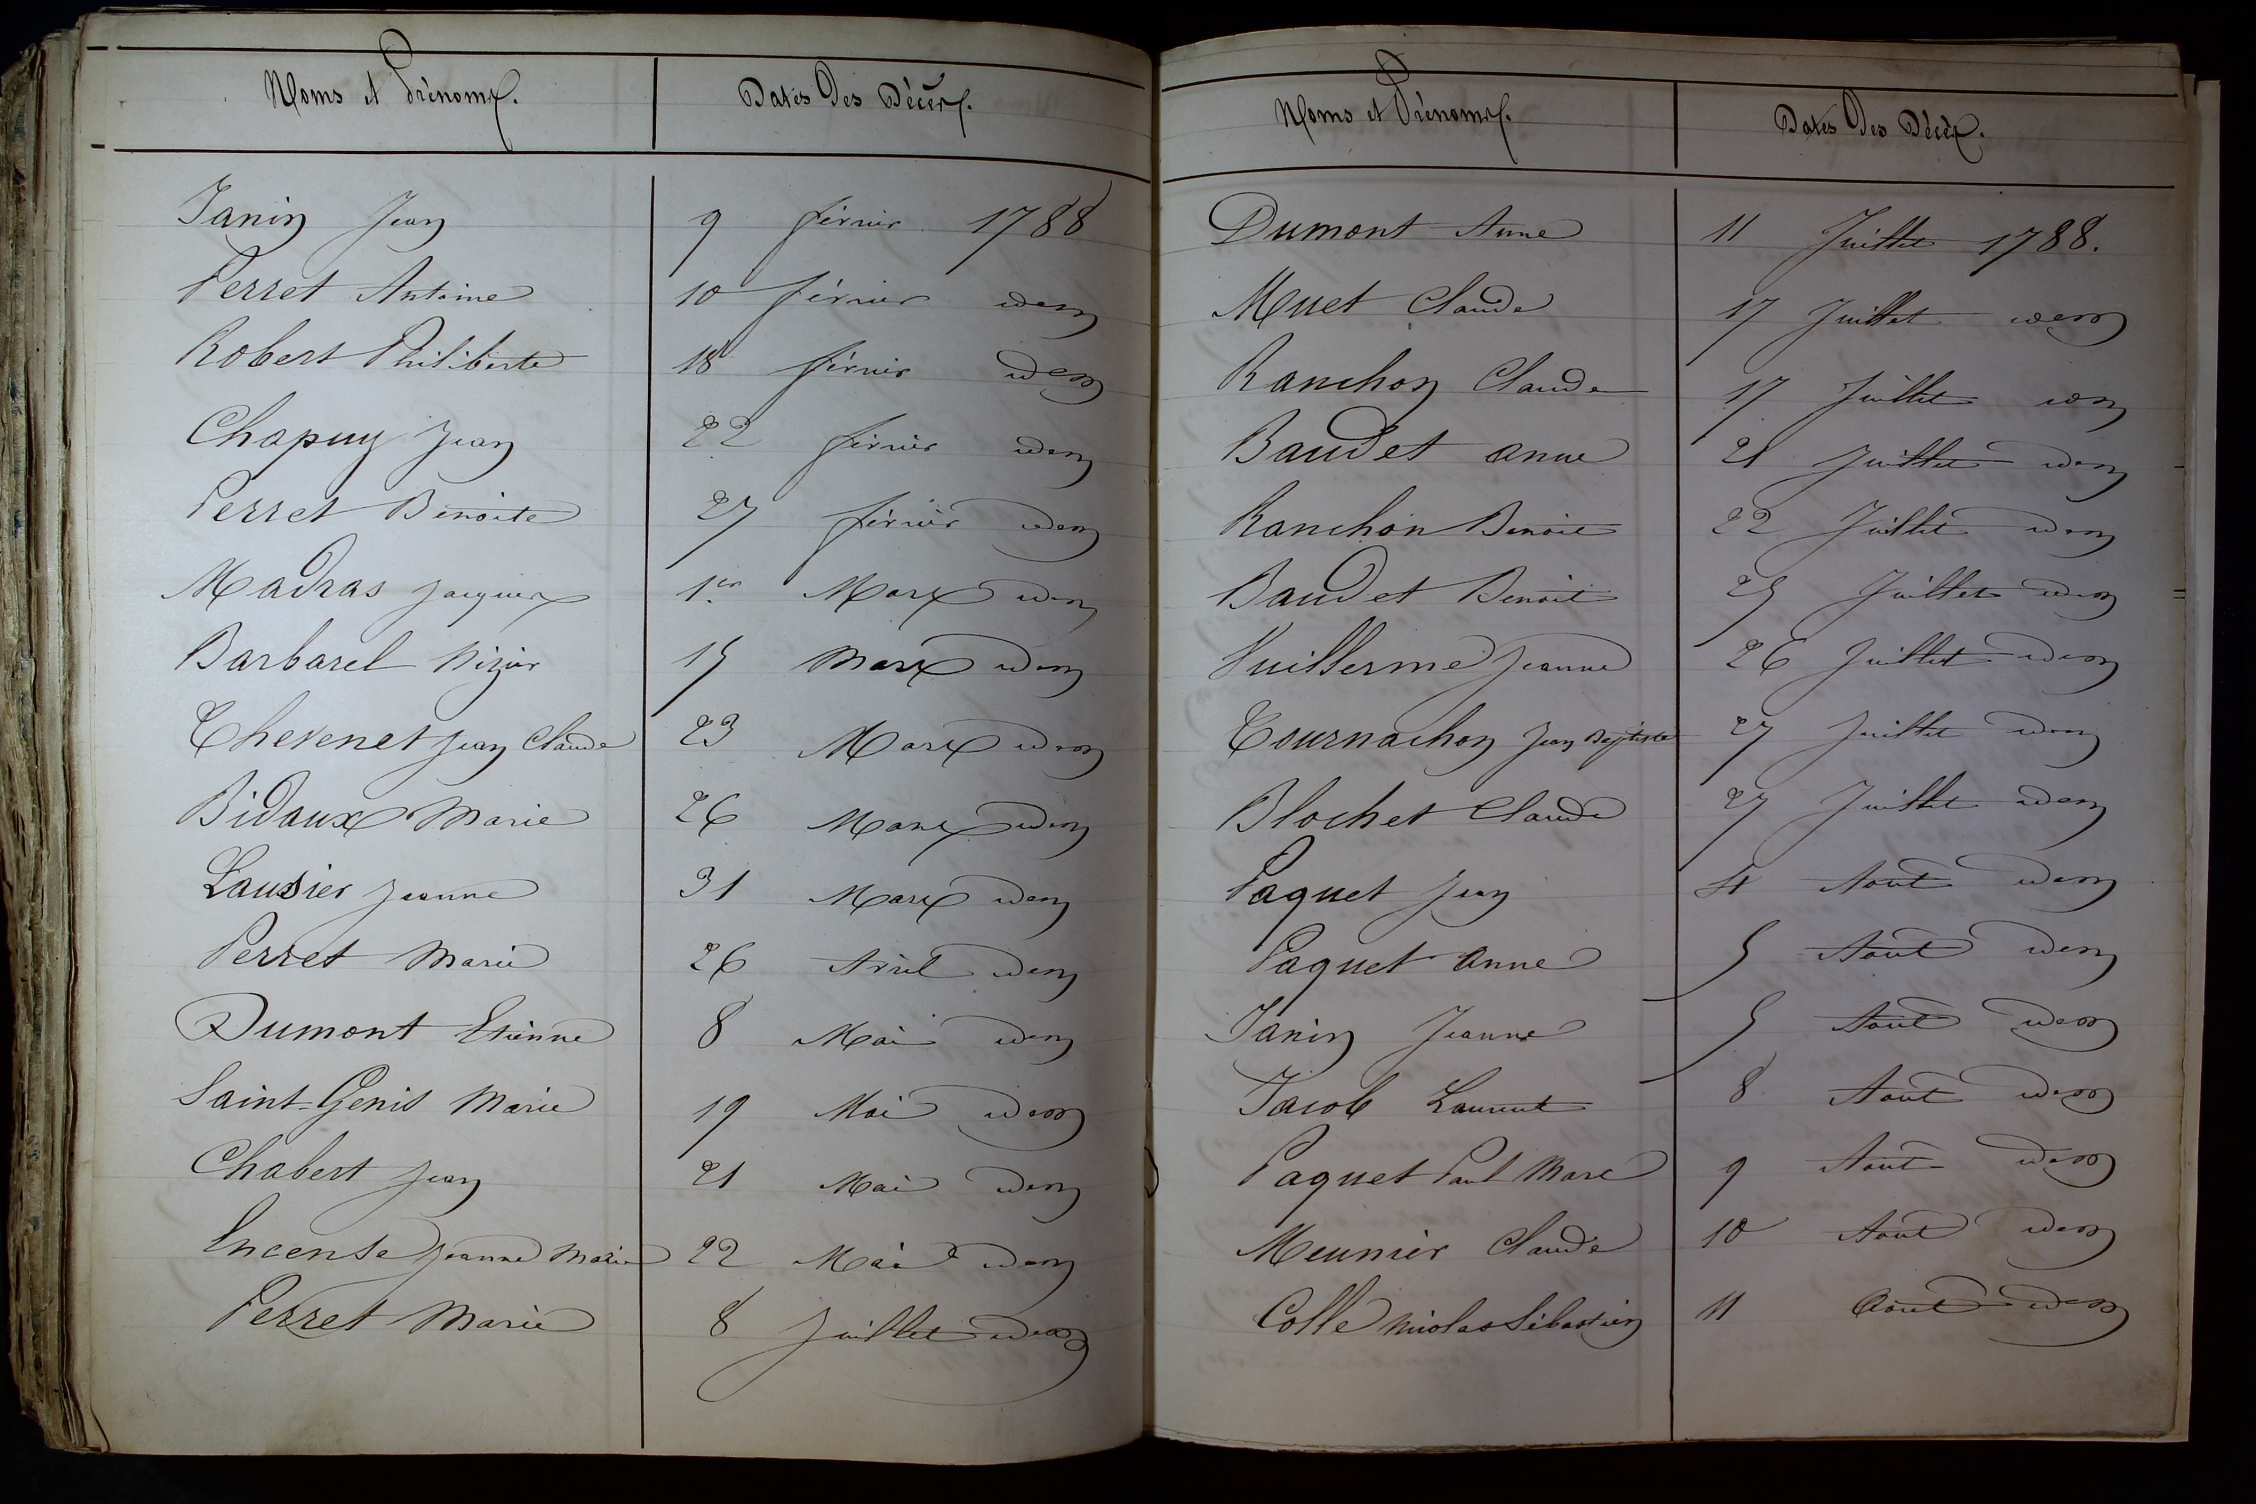 Noms et Prénoms. Dates Des Décès.
Janin Jean 9 février 1788
Perret Antoine 10 février idem
Robert Philiberte 18 février idem
Chapuy Jean 22 février idem
Perret Benoite 27 février idem
Madras Jacques 1er Mars idem
Barbarel Nizier 15 Mars idem
Thevenet Jean Claude 23 Mars idem
Bidaux Marie 26 Mars idem
Lausier Jeanne 31 Mars idem
Perret Marie 26 Avril idem
Dumont Etienne 8 Mai idem
Saint-Genis Marie 19 Mai idem
Chabert Jean 21 Mai idem
Encense Jeanne Marie 22 Mai idem
Perret Marie 8 Juillet idem
Noms et Prénoms. Dates Des Décès.
Dumont Anne 11 Juillet 1788.
Muet Claude 17 Juillet idem
Ranchon Claude 17 Juillet idem
Baudet anne 21 Juillet idem
Ranchon Benoit 22 Juillet idem
Baudet Benoit 25 Juillet idem
Vuillerme Jeanne 26 Juillet idem
Tournachon Jean Baptiste 27 Juillet idem
Blochet Claude 27 Juillet idem
Paquet Jean 4 Aout idem
Paquet anne 5 Aout idem
Janin Jeanne 5 Aout idem
Jacob Laurent 8 Aout idem
Paquet Paul Marc 9 Aout idem
Meunier Claude 10 Aout idem
Colle Nicolas Sébastien 11 Aout idem